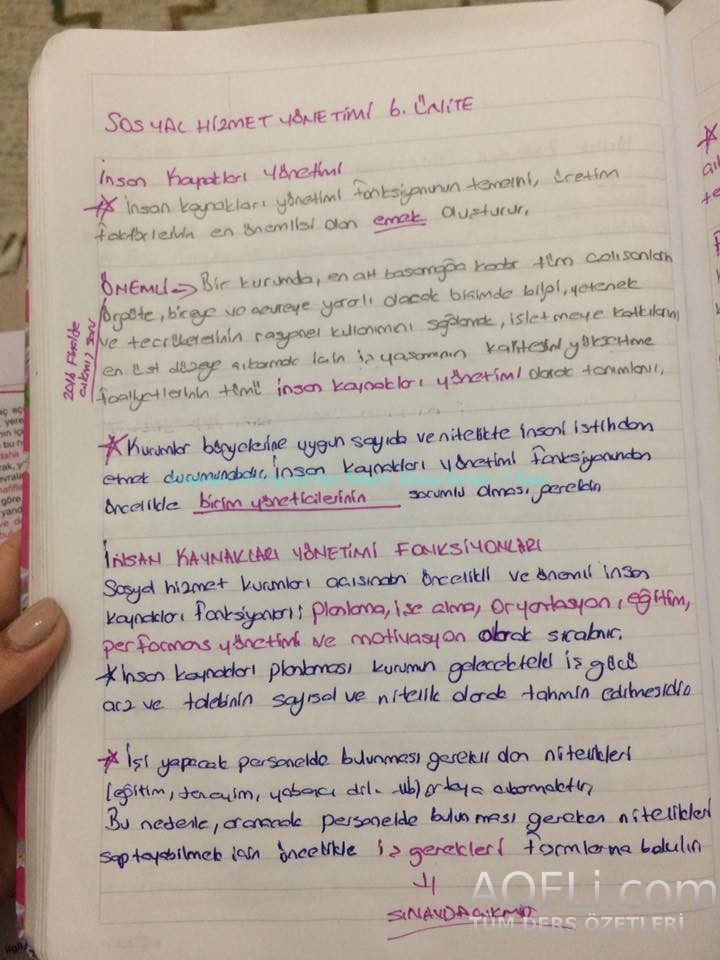 SOSYAL HİZMET YÖNETİMİ 6. ÜNİTE
İnsan Kaynakları Yönetimi
İnsan kaynakları yönetimi fonksiyonunun temelini, üretim
faktörlerinin en önemlisi olan emek oluşturur.
ÖNEMLİ → Bir kurumda, en alt basamağa kadar tüm çalışanların
örgüte, bireye ve çevreye yararlı olacak biçimde bilgi, yetenek
ve tecrübelerinin rasyonel kullanımını sağlamak, işletmeye katkılarını
en üst düzeye çıkarmak için iş yaşamının kalitesini yükseltme
faaliyetlerinin tümü insan kaynakları yönetimi olarak tanımlanır.
2016 Finalde
çıkmış soru
Kurumlar bünyelerine uygun sayıda ve nitelikte insanı istihdam
etmek durumundadır. İnsan kaynakları yönetimi fonksiyonundan
öncelikle birim yöneticilerinin sorumlu olması gerekir
İNSAN KAYNAKLARI YÖNETİMİ FONKSİYONLARI
Sosyal hizmet kurumları açısından öncelikli ve önemli insan
kaynakları fonksiyonları; planlama, işe alma, oryantasyon, eğitim,
performans yönetimi ve motivasyon olarak sıralanır.
İnsan kaynakları planlaması kurumun gelecekteki iş gücü
arz ve talebinin sayısal ve nitelik olarak tahmin edilmesidir
İşi yapacak personelde bulunması gerekli olan nitelikleri
(eğitim, deneyim, yabancı dil. vb) ortaya çıkarmaktır.
Bu nedenle, aranacak personelde bulunması gereken nitelikleri
saptayabilmek için öncelikle iş gerekleri formlarına bakılır
SINAVDA ÇIKMIŞ
AOFLi.com
TÜM DERS ÖZETLERİ